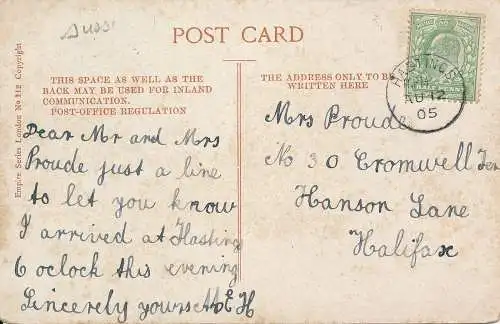 Sussx
POST CARD
THIS SPACE AS WELL AS THE
BACK MAY BE USED FOR INLAND
COMMUNICATION.
POST-OFFICE REGULATION
THE ADDRESS ONLY TO BE
WRITTEN HERE
Empire Series London No 112 Copyright
HASTINGS
AU 12
05
Dear Mr and Mrs
Proude just a line
to let you know
I arrived at Hasting
6 oclock this evening
Sincerely yours
Mrs Proude
No 30 Cromwell Ter
Hanson Lane
Halifax